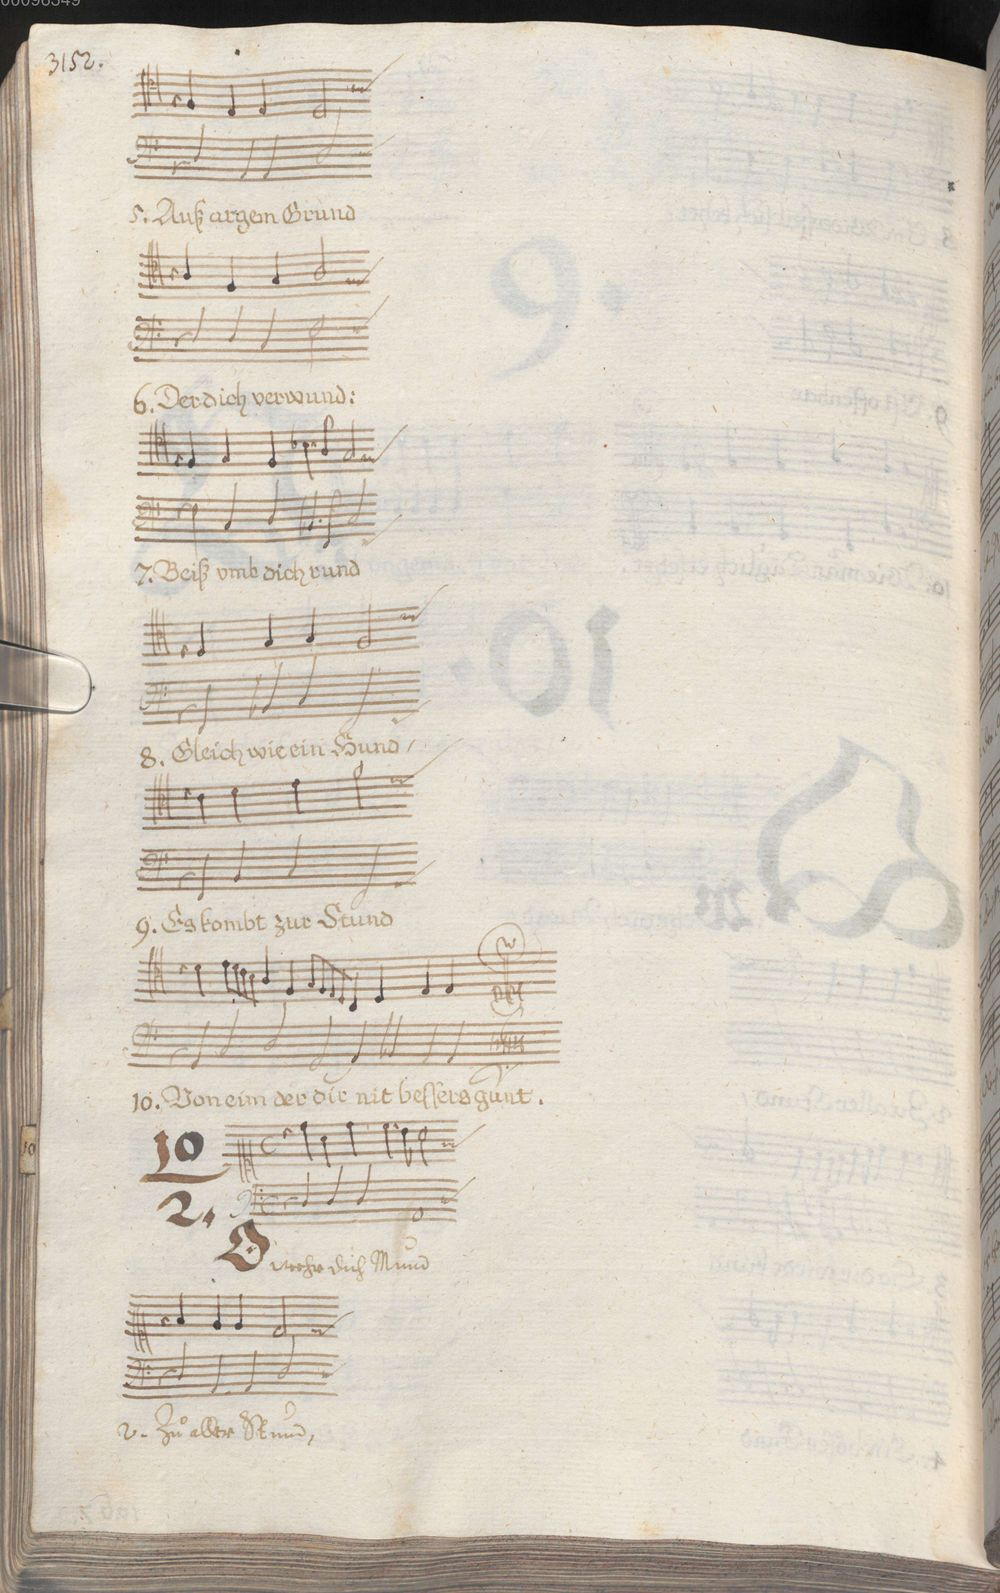 00096349
3152.
5. Auß argem Grund
6. Der dich verwund:
7. Beiß vmb dich rund
8. Gleich wie ein Hund,
9. Es kombt zur Stund
10. Von eim der dir nit bessers gunt.
10
2.
O wehr dich Mund
2. Zů aller Stund,